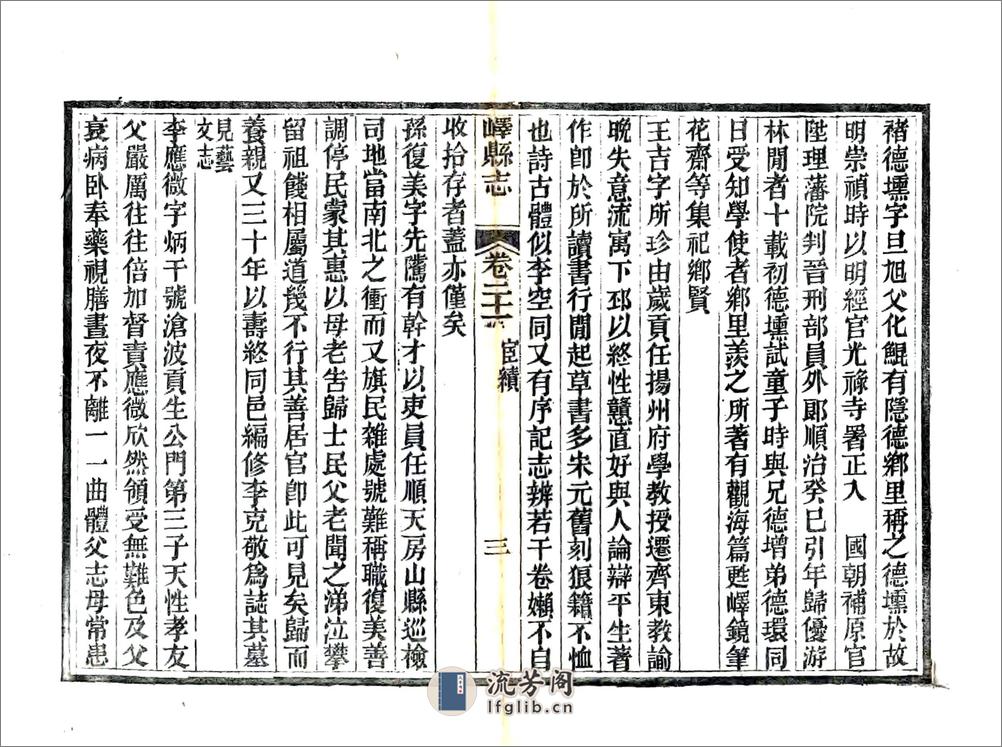 褚德壎字旦旭父化鯤有隱德鄉里稱之德壎於故
明崇禎時以明經官光祿寺署正入　國朝補原官
陞理藩院判晉刑部員外郎順治癸巳引年歸優游
林閒者十載初德壎試童子時與兄德增弟德環同
日受知學使者鄉里羨之所著有觀海篇甦嶧鏡筆
花齋等集祀鄉賢
王吉字所珍由歲貢任揚州府學教授遷齊東教諭
晚失意流寓下邳以終性戇直好與人論辯平生著
作卽於所讀書行閒起草書多朱元舊刻狠籍不恤
也詩古體似李空同又有序記志辨若干卷嬾不自
嶧縣志　卷二十　宦績　三
收拾存者蓋亦僅矣
孫復美字先隲有幹才以吏員任順天房山縣巡檢
司地當南北之衝而又旗民雜處號難稱職復美善
調停民蒙其惠以母老告歸士民父老聞之涕泣攀
留祖餞相屬道幾不行其善居官卽此可見矣歸而
養親又三十年以壽終同邑編修李克敬為誌其墓
見藝
文志
李應微字炳干號滄波貢生公門第三子天性孝友
父嚴厲往往倍加督責應微欣然領受無難色及父
衰病臥奉藥視膳晝夜不離一一曲體父志母常患
流芳阁
lfglib.cn